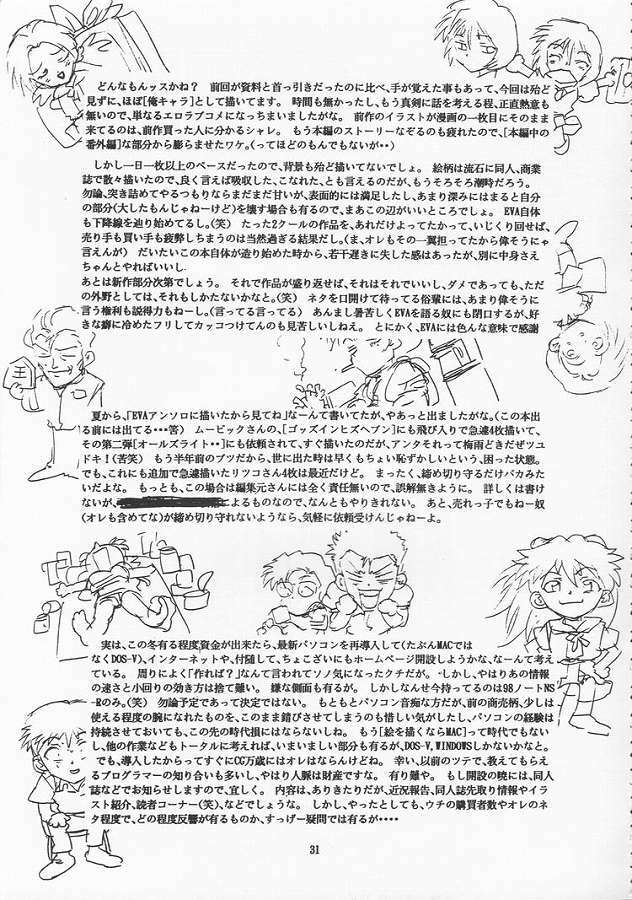 どんなもんッスかね？　前回が資料と首っ引きだったのに比べ、手が覚えた事もあって、今回は殆ど
見ずに、ほぼ[俺キャラ]として描いてます。　時間も無かったし、もう真剣に話を考える程、正直熱意も
無いので、単なるエロラブコメになっちまいましたがな。　前作のイラストが漫画の一枚目にそのまま
来てるのは、前作買った人に分かるシャレ。　もう本編のストーリーなぞるのも疲れたので、[本編中の
番外編]な部分から膨らませたワケ。(ってほどのもんでもないが‥)
しかし一日一枚以上のペースだったので、背景も殆ど描いてないでしょ。　絵柄は流石に同人、商業
誌で散々描いたので、良く言えば吸収した、こなれた、とも言えるのだが、もうそろそろ潮時だろう。
勿論、突き詰めてやるつもりならまだまだ甘いが、表面的には満足したし、あまり深みにはまると自分
の部分(大したもんじゃねーけど)を壊す場合も有るので、まあこの辺がいいところでしょ。　EVA自体
も下降線を辿り始めてるし。(笑)　たった2クールの作品を、あれだけよってたかって、いじくり回せば、
売り手も買い手も疲弊しちまうのは当然過ぎる結果だし。(ま、オレもその一翼担ってたから偉そうにゃ
言えんが)　だいたいこの本自体が造り始めた時から、若干遅きに失した感はあったが、別に中身さえ
ちゃんとやればいいし.
あとは新作部分次第でしょう。　それで作品が盛り返せば、それはそれでいいし、ダメであっても、ただ
の外野としては、それもしかたないかなと。(笑)　ネタを口開けて待ってる俗輩には、あまり偉そうに
言う権利も説得力もねーし。(言ってる言ってる)　あんまし暑苦しくEVAを語る奴にも閉口するが、好
きな癖に冷めたフリしてカッコつけてんのも見苦しいしねえ。　とにかく、EVAには色んな意味で感謝
王
夏から、「EVAアンソロに描いたから見てね」なーんて書いてたが、やあっと出ましたがな。(この本出
る前には出てる‥･答)　ムービックさんの、[ゴッズインヒズヘブン]にも飛び入りで急遽4枚描いて、
その第二弾[オールズライト‥]にも依頼されて、すぐ描いたのだが、アンタそれって梅雨どきだぜツユ
ドキ！(苦笑)　もう半年前のブツだから、世に出た時は早くもちょい恥ずかしいという、困った状態。
でも、これにも追加で急遽描いたリツコさん4枚は最近だけど。　まったく、締め切り守るだけバカみた
いだよな。　もっとも、この場合は編集元さんには全く責任無いので、誤解無きように。　詳しくは書け
ないが、　によるものなので、なんともやりきれない。　あと、売れっ子でもねー奴
(オレも含めてな)が締め切り守れないようなら、気軽に依頼受けんじゃねーよ。
実は、この冬有る程度資金が出来たら、最新パソコンを再導入して(たぶんMACでは
なくDOS-V)、インターネットや、付随して、ちょこざいにもホームページ開設しようかな、なーんて考え
ている。　周りによく「作れば？」なんて言われてソノ気になったクチだが。　しかし、やはりあの情報
の速さと小回りの効き方は捨て難い。　嫌な側面も有るが。　しかしなんせ今持ってるのは98ノートNS
-Rのみ。(笑)　勿論予定であって決定ではない。　もともとパソコン音痴な方だが、前の商売柄、少しは
使える程度の腕になれたものを、このまま錆びさせてしまうのも惜しい気がしたし、パソコンの経験は
持続させておいても、この先の時代損にはならないしね。　もう[絵を描くならMAC]って時代でもない
し、他の作業などもトータルに考えれば、いまいましい部分も有るが、DOS-V,WINDOWSしかないかなと。
でも、導入したからってすぐにCG万歳にはオレはならんけどね。　幸い、以前のツテで、教えてもらえ
るプログラマーの知り合いも多いし、やはり人脈は財産ですな。　有り難や。　もし開設の暁には、同人
誌などでお知らせしますので、宜しく。　内容は、ありきたりだが、近況報告、同人誌先取り情報やイラ
スト紹介、読者コーナー(笑)、などでしょうな。　しかし、やったとしても、ウチの購買者数やオレのネ
タ程度で、どの程度反響が有るものか、すっげー疑問では有るが‥‥
31